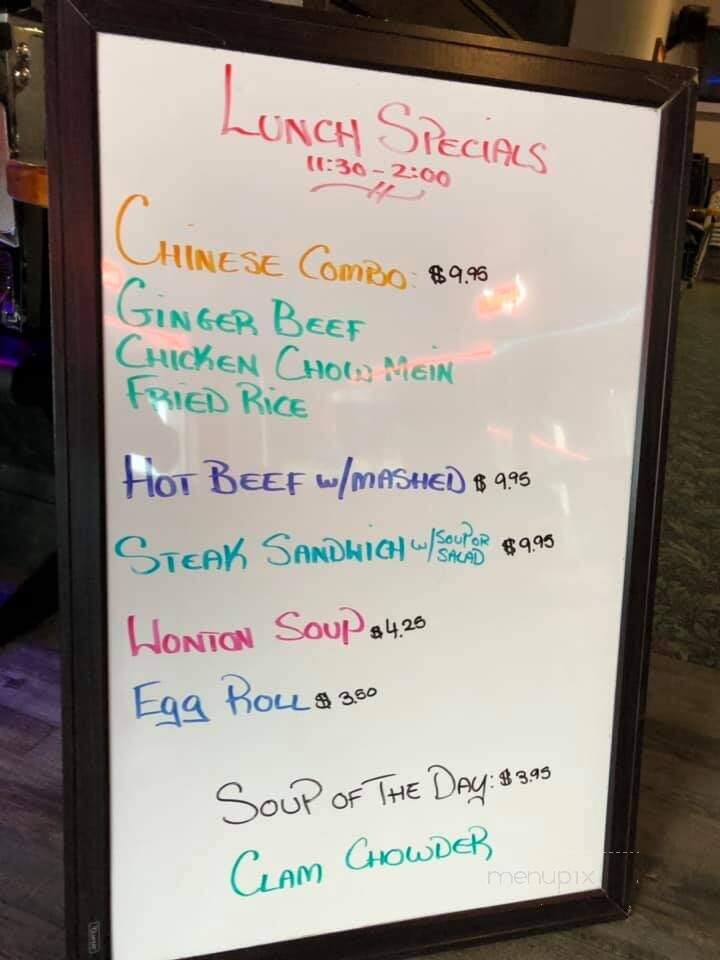 LUNCH SPECIALS
11:30 - 2:00
CHINESE COMBO: $9.95
GINGER BEEF
CHICKEN CHOW MEIN
FRIED RICE
HOT BEEF w/MASHED $9.95
STEAK SANDWICH w/SOUP OR SALAD $9.95
WONTON SOUP $4.25
Egg ROLL $3.50
SOUP OF THE DAY: $3.95
CLAM CHOWDER
menupix